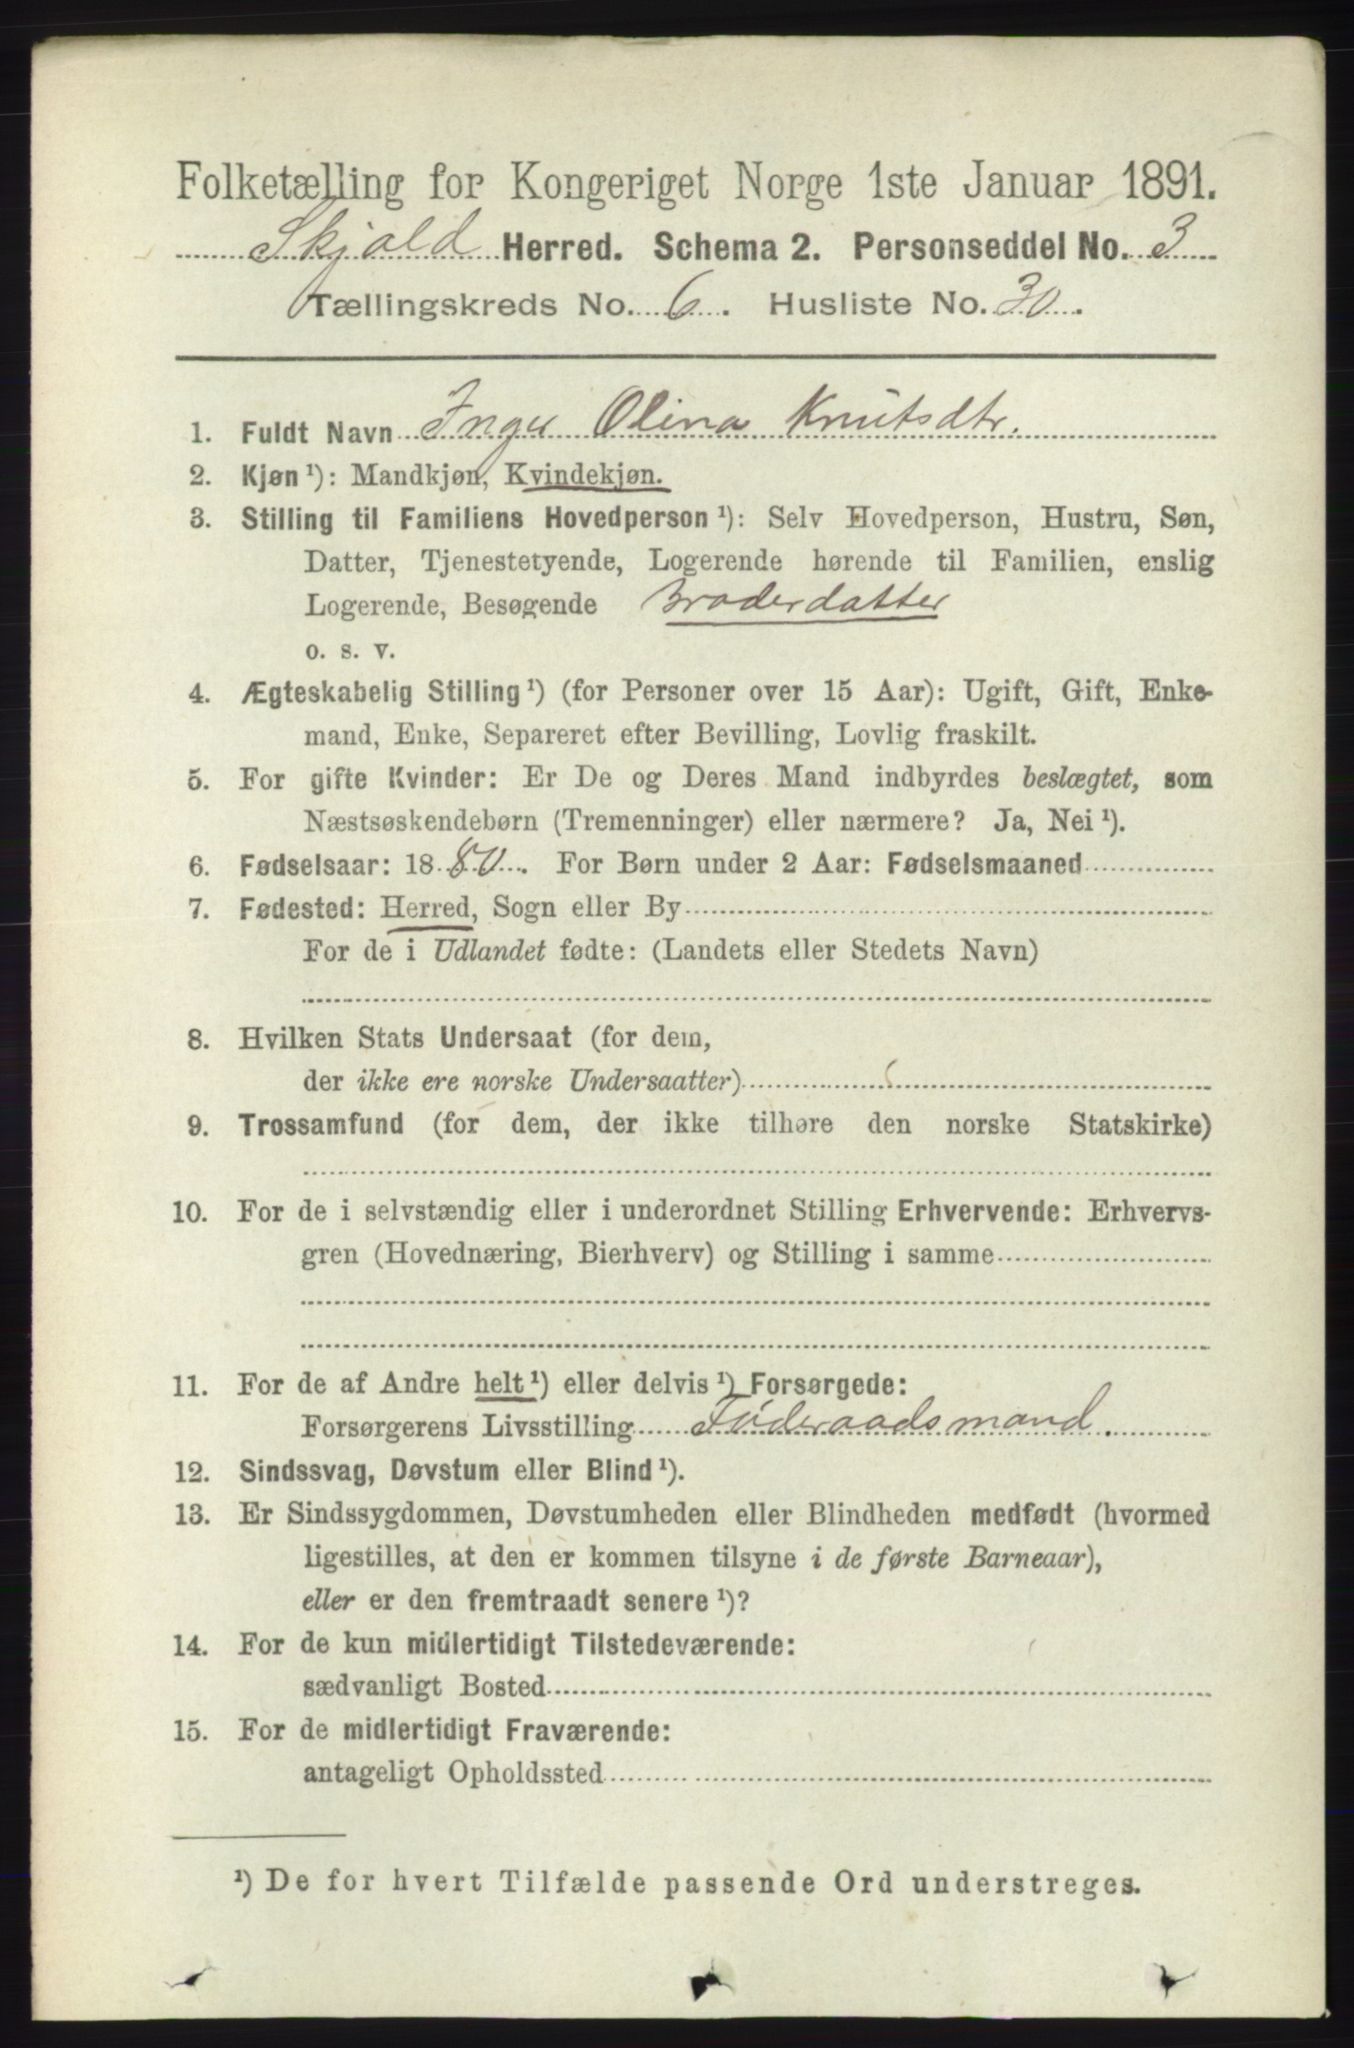 Folketælling for Kongeriget Norge 1ste Januar 1891.
Skjold Herred. Schema 2. Personseddel No. 3
Tællingskreds No. 6. Husliste No. 30.
1. Fuldt Navn Inger Olina Knutsdtr.
2. Kjøn¹): Mandkjøn, Kvindekjøn.
3. Stilling til Familiens Hovedperson¹): Selv Hovedperson, Hustru, Søn,
Datter, Tjenestetyende, Logerende hørende til Familien, enslig
Logerende, Besøgende Broderdatter
o. s. v.
4. Ægteskabelig Stilling¹) (for Personer over 15 Aar): Ugift, Gift, Enke-
mand, Enke, Separeret efter Bevilling, Lovlig fraskilt.
5. For gifte Kvinder: Er De og Deres Mand indbyrdes beslægtet, som
Næstsøskendebørn (Tremenninger) eller nærmere? Ja, Nei¹).
6. Fødselsaar: 1880. For Børn under 2 Aar: Fødselsmaaned
7. Fødested: Herred, Sogn eller By
For de i Udlandet fødte: (Landets eller Stedets Navn)
8. Hvilken Stats Undersaat (for dem,
der ikke ere norske Undersaatter)
9. Trossamfund (for dem, der ikke tilhøre den norske Statskirke)
10. For de i selvstændig eller i underordnet Stilling Erhvervende: Erhvervs-
gren (Hovednæring, Bierhverv) og Stilling i samme
11. For de af Andre helt¹) eller delvis¹) Forsørgede:
Forsørgerens Livsstilling Föderaadsmand.
12. Sindssvag, Døvstum eller Blind¹).
13. Er Sindssygdommen, Døvstumheden eller Blindheden medfødt (hvormed
ligestilles, at den er kommen tilsyne i de første Barneaar),
eller er den fremtraadt senere¹)?
14. For de kun midlertidigt Tilstedeværende:
sædvanligt Bosted
15. For de midlertidigt Fraværende:
antageligt Opholdssted
¹) De for hvert Tilfælde passende Ord understreges.